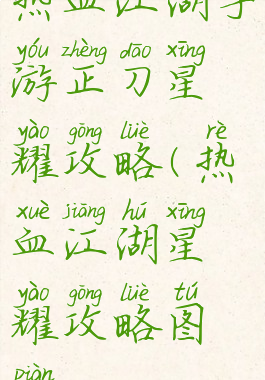 热血江湖手
yóu zhèng dāo xīng
游正刀星
yào gōng lüè rè
耀攻略(热
xuè jiāng hú xīng
血江湖星
yào gōng lüè tú
耀攻略图
piàn